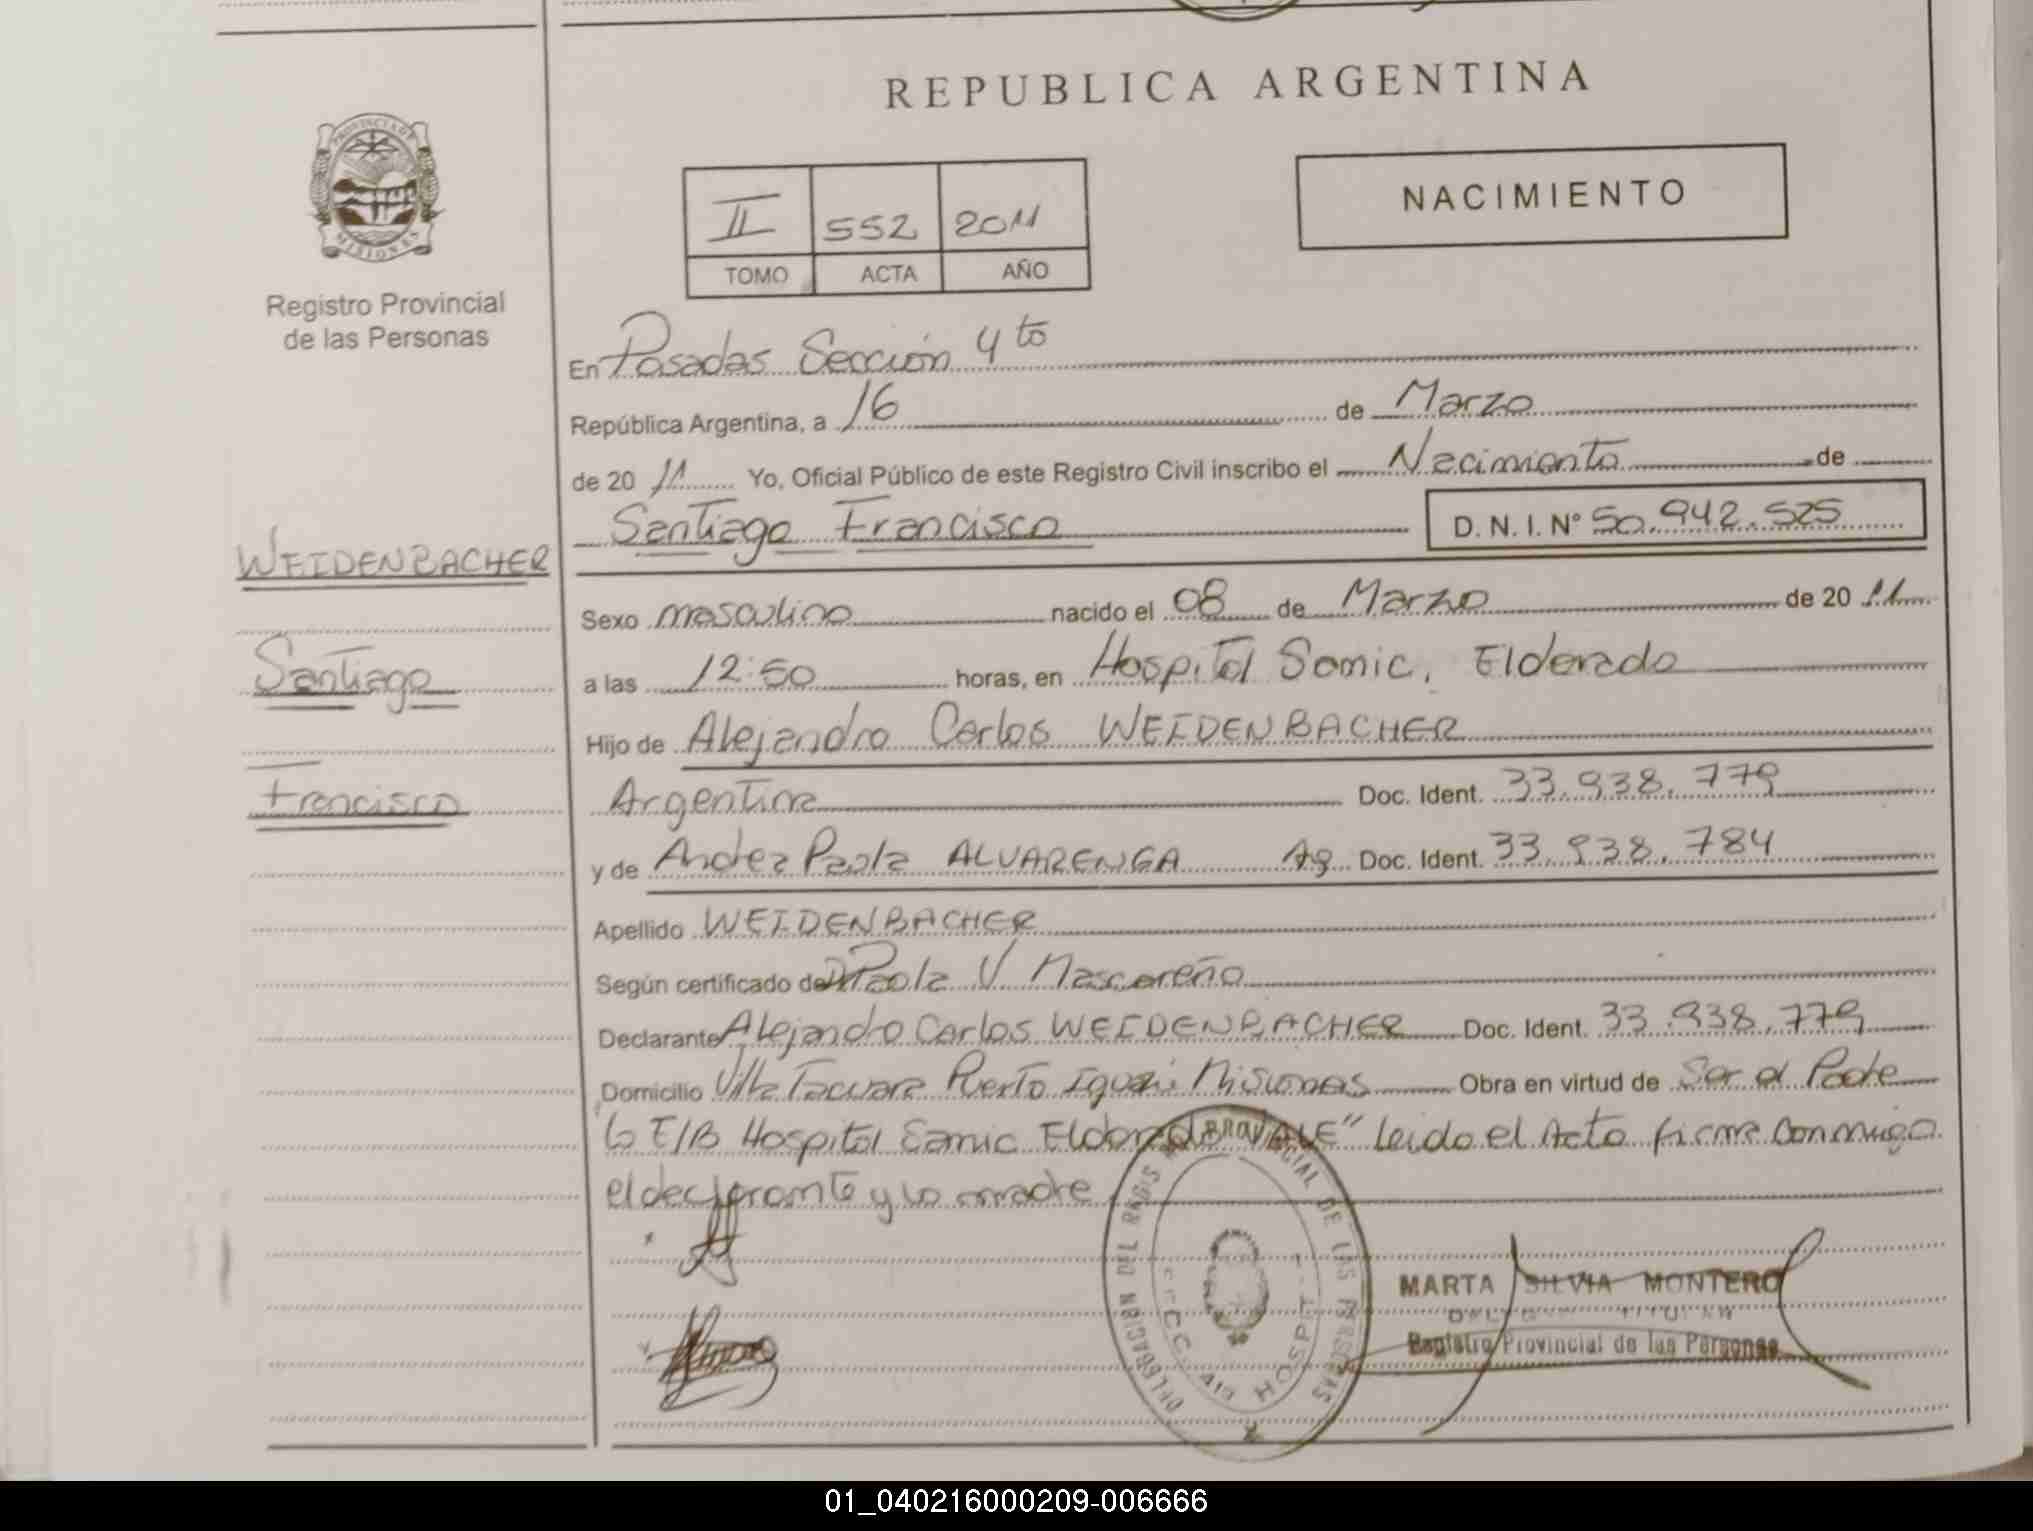 REPUBLICA ARGENTINA
PROVINCIA DE
MISIONES
Registro Provincial
de las Personas
II 552 2011
TOMO ACTA AÑO
NACIMIENTO
En Posadas Sección 4to
República Argentina, a 16 de Marzo
de 20 11 Yo, Oficial Público de este Registro Civil inscribo el Nacimiento de
Santiago Francisco D. N. I. N° 50.942.525
WEIDENBACHER
Santiago
Francisco
Sexo masculino nacido el 08 de Marzo de 20 11
a las 12:50 horas, en Hospital Samic, Eldorado
Hijo de Alejandro Carlos WEIDENBACHER
Argentina Doc. Ident. 33.938.779
y de Andrea Paola ALVARENGA Ag Doc. Ident. 33.938.784
Apellido WEIDENBACHER
Según certificado de Paola V Mascareño
Declarante Alejandro Carlos WEIDENBACHER Doc. Ident. 33.938.779
Domicilio Villa Tacuara Puerto Iguazú Misiones Obra en virtud de Ser el Padre
E/B Hospital Samic Eldorado "VALE" leido el Acta firma conmigo
el declarante y la madre
DELEGACION DEL REGISTRO PROVINCIAL DE LAS PERSONAS
HOSPIT
MARTA SILVIA MONTERO
TITULAR
Registro Provincial de las Personas
01_040216000209-006666